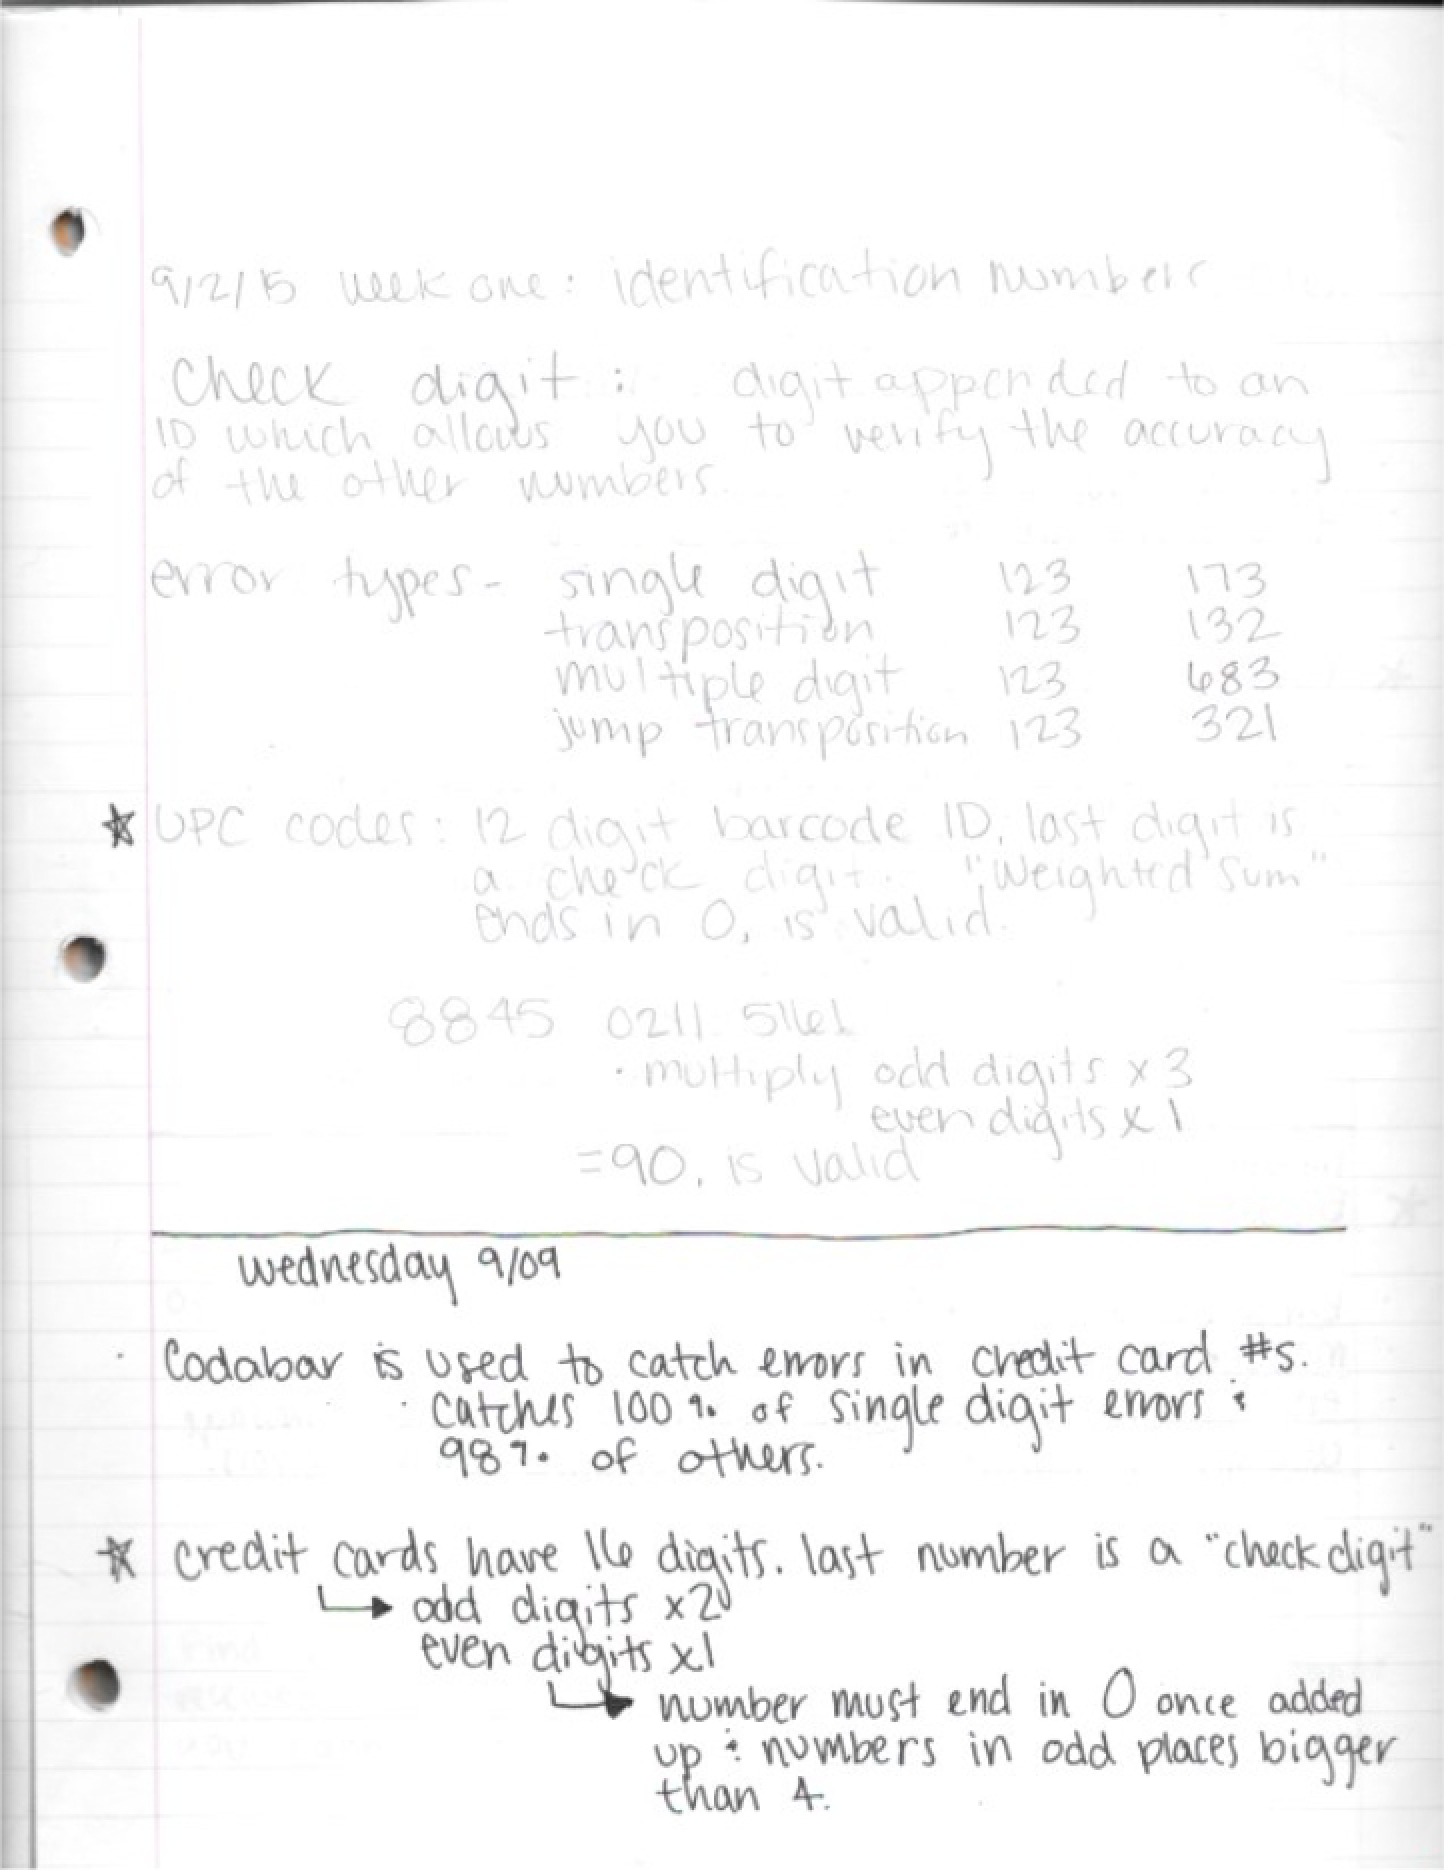 9/2/15 week one: identification numbers
Check digit: digit appended to an
ID which allows you to verify the accuracy
of the other numbers.
error types- single digit 123 173
transposition 123 132
multiple digit 123 683
jump transposition 123 321
UPC codes: 12 digit barcode ID, last digit is
a check digit. "Weighted Sum"
ends in 0, is valid.
8845 0211 5161
· multiply odd digits x 3
even digits x 1
=90, is valid
wednesday 9/09
· Codabar is used to catch errors in credit card #s.
· catches 100% of single digit errors &
98% of others.
credit cards have 16 digits. last number is a "check digit"
odd digits x2
even digits x1
number must end in 0 once added
up & numbers in odd places bigger
than 4.